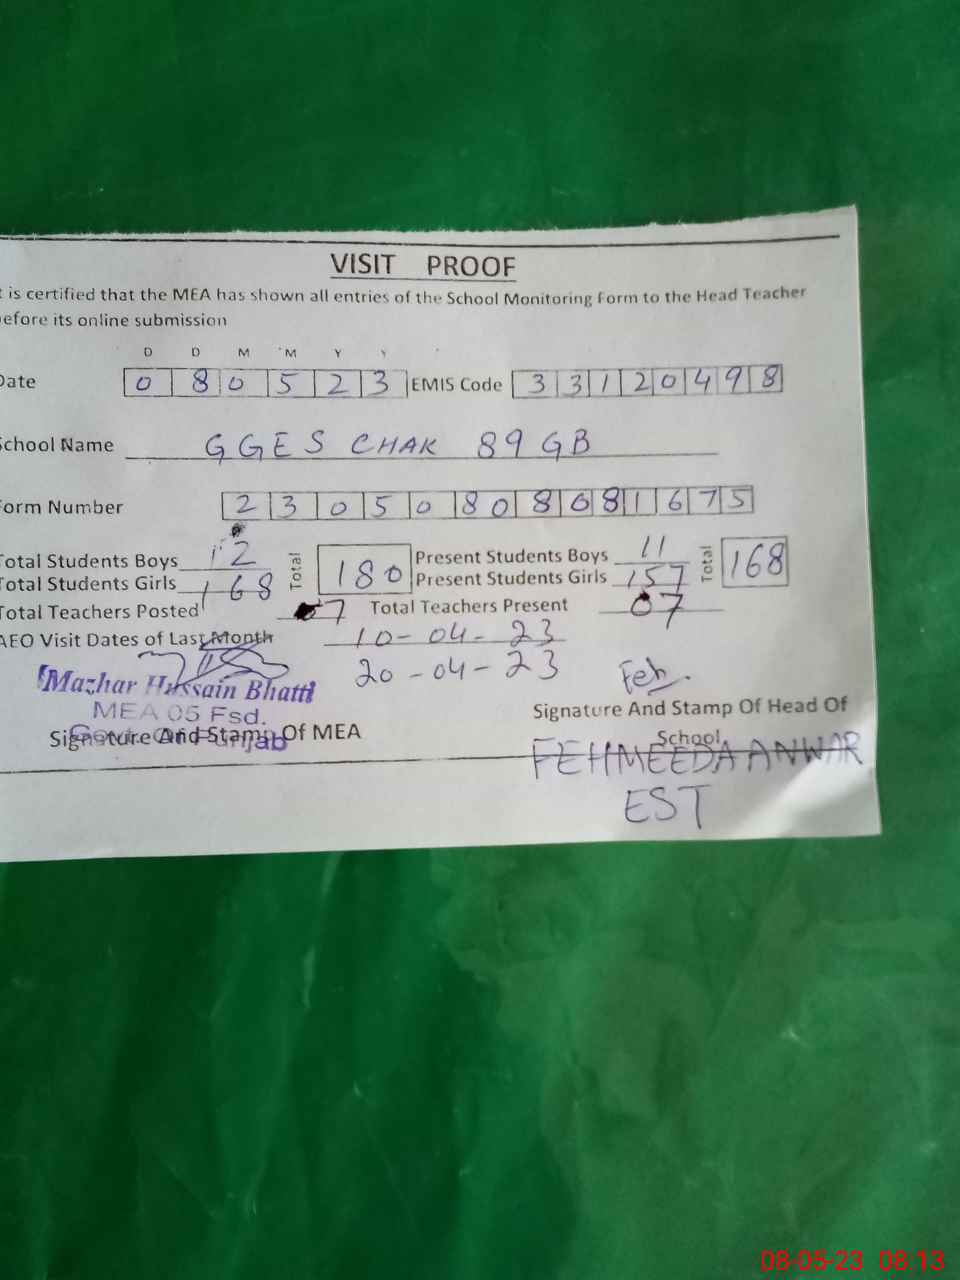 VISIT PROOF
t is certified that the MEA has shown all entries of the School Monitoring Form to the Head Teacher
efore its online submission
D D M M Y Y
Date 0 8 0 5 2 3 EMIS Code 3 3 1 2 0 4 9 8
School Name GGES CHAK 89 GB
Form Number 2 3 0 5 0 8 0 8 0 8 1 6 7 5
Total Students Boys 12 Total 180 Present Students Boys 11 Total 168
Total Students Girls 168 Present Students Girls 157
Total Teachers Posted 07 Total Teachers Present 07
AEO Visit Dates of Last Month 10-04-23
20-04-23
Mazhar Hussain Bhatti
MEA 05 Fsd.
Punjab
Signature And Stamp Of MEA
Feh.
Signature And Stamp Of Head Of
School
FEHMEEDA ANWAR
EST
08-05-23 08:13